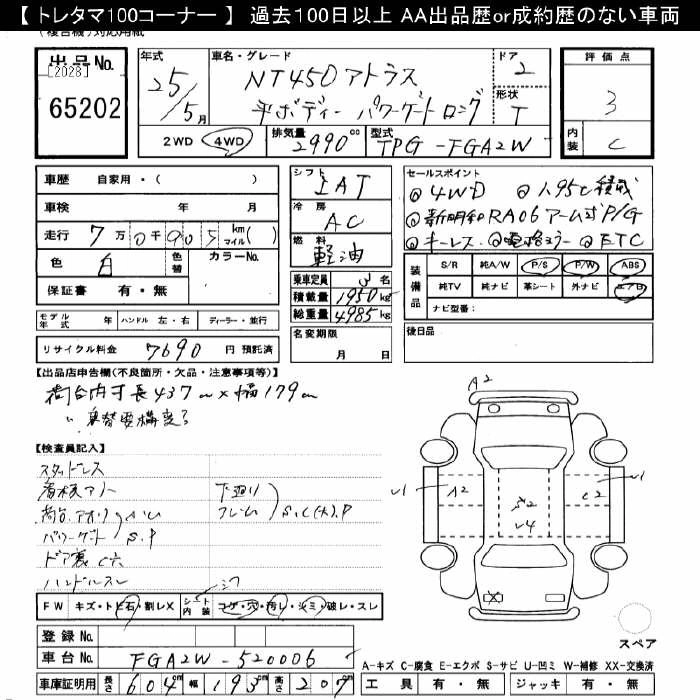 【 トレタマ100コーナー 】 過去100日以上 AA出品歴or成約歴のない車両
出品No.
[2028]
65202
年式
25/5月
車名・グレード
NT450アトラス
平ボディー パワーゲートロング
ドア
2
形状
T
評価点
3
内装
C
2WD 4WD
排気量
2990cc
型式
TPG-FGA2W
車歴 自家用・( )
車検 年 月
走行 7万0千905 km マイル( )
色 白 色替 カラーNo.
保証書 有・無
シフト
IAT
冷房
AC
燃料
軽油
乗車定員 3名
積載量 1950kg
総重量 4985kg
名変期限
月 日
セールスポイント
◎4WD ◎1.95t積載
◎新明和RA06アーム式P/G
◎キーレス ◎電格ミラー ◎ETC
装備品
S/R 純A/W P/S P/W ABS
純TV 純ナビ 革シート 外ナビ エアB
ナビ型番：
後日品
モデル年式 年 ハンドル 左・右 ディーラー・並行
リサイクル料金 7690 円 預託済
【出品店申告欄(不良箇所・欠品・注意事項等)】
荷台内寸長437cm×幅179cm
【検査員記入】
スタッドレス
看板アリ
荷台.アオリ
パワーゲート
S.P
ドア裏
ハンドルスレ
下廻り
フレーム
S.C(大).P
FW キズ・トビ石・割レX
シート内装 コゲ・穴・汚レ・シミ・破レ・スレ
登録No.
車台No. FGA2W-520006
車庫証明用 長さ 604m 幅 193m 高さ 209m
A2
A2
C2
スペア
A-キズ C-腐食 E-エクボ S-サビ U-凹ミ W-補修 XX-交換済
工具 有・無 ジャッキ 有・無